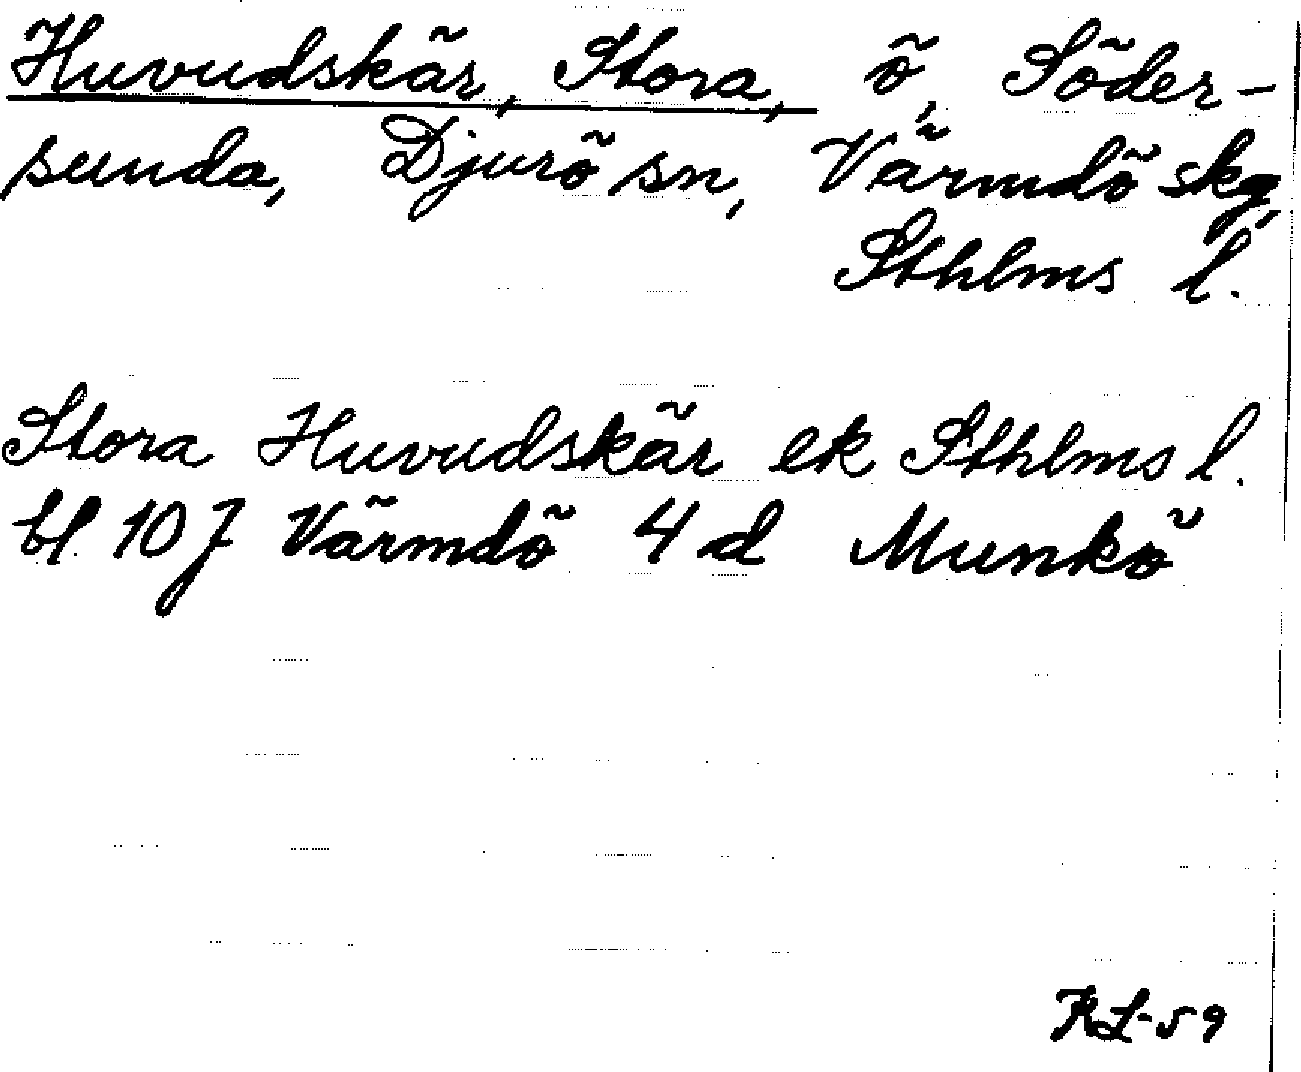 Huvudskär, Stora, ö, Söder-
sunda, Djurö sn, Värmdö skg,
Sthlms l.
Stora Huvudskär ek Sthlms l.
bl. 107 Värmdö 4 d Munkö
KL-59